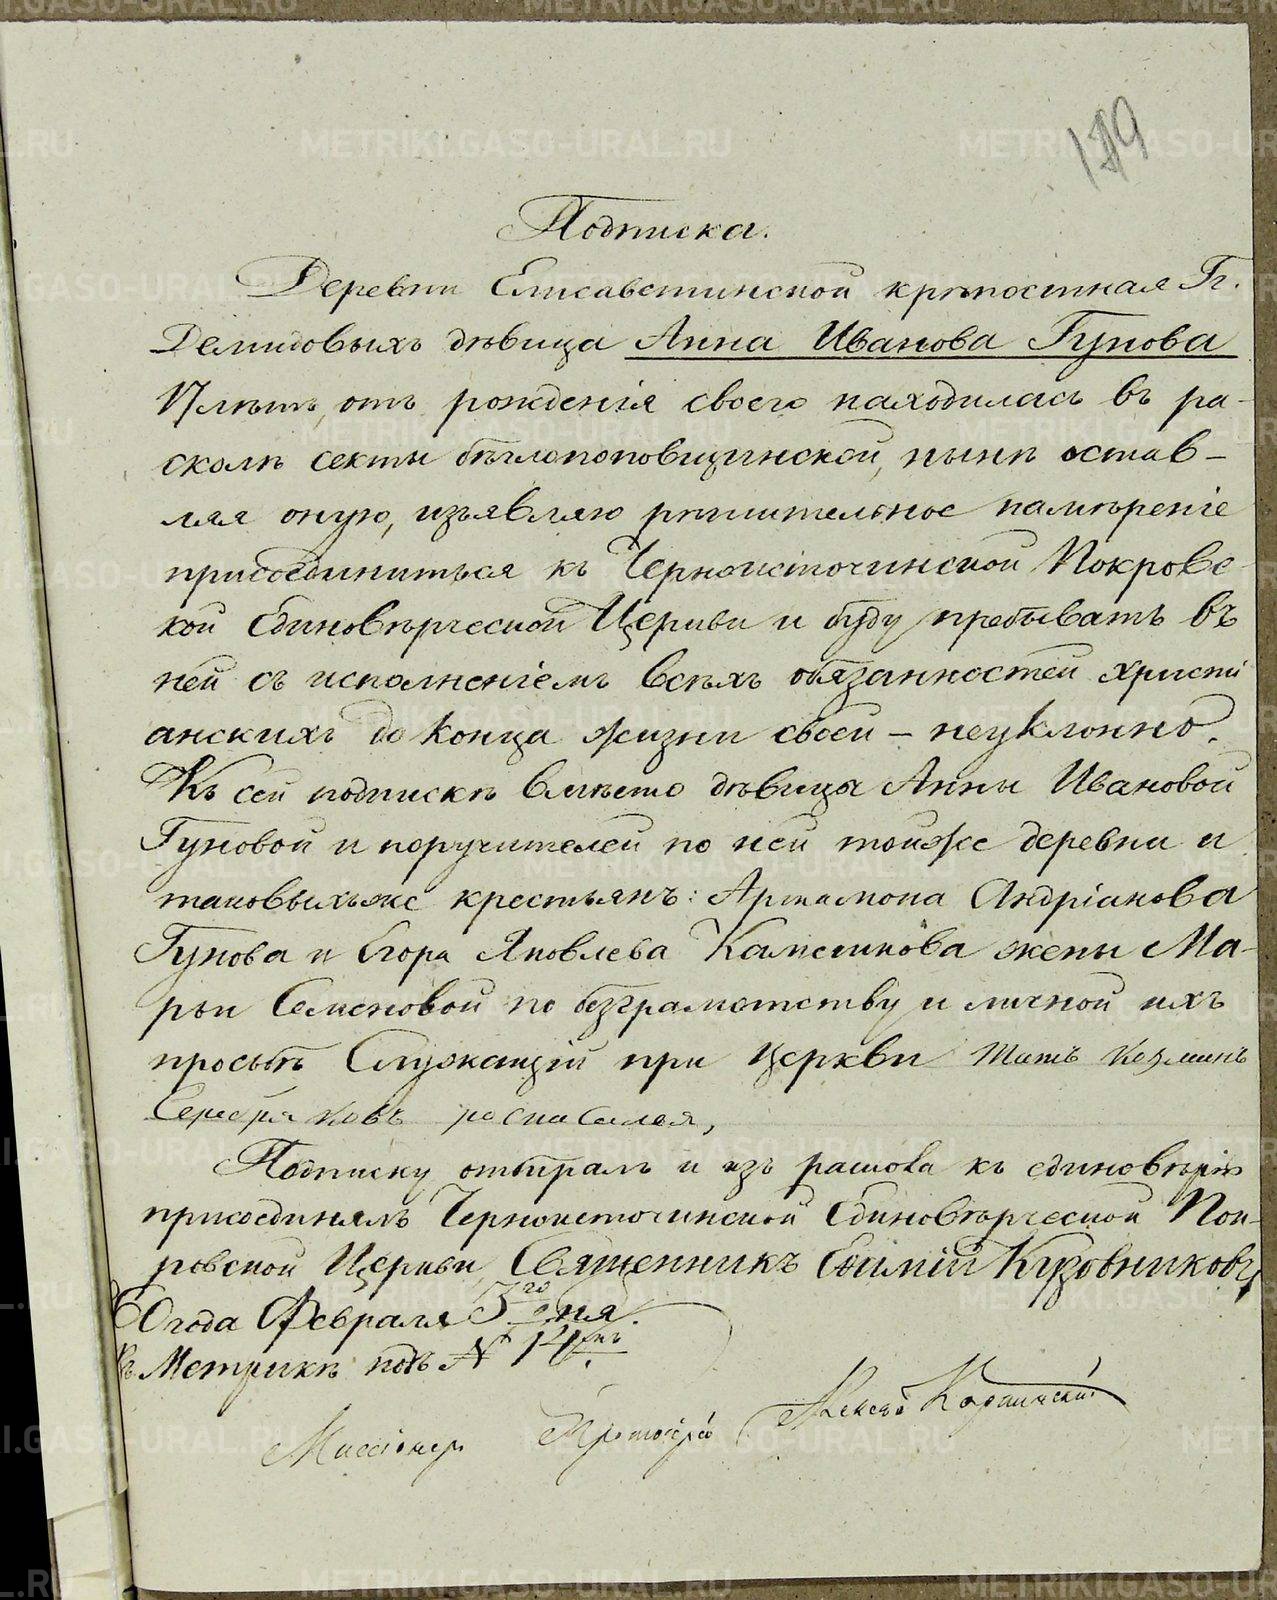 179
Подписка.
Деревни Елисаветинской крѣпостная Гг.
Демидовыхъ дѣвица Анна Иванова Гунова
17 лѣтъ, отъ рожденія своего находилась въ ра-
сколѣ секты бѣглопоповщинской, нынѣ остав-
ляя оную, изъявляю рѣшительное намѣреніе
присоединиться къ Черноисточинской Покровс-
кой Единовѣрческой Церкви и буду пребывать въ
ней съ исполненіемъ всѣхъ обязанностей христі
анскихъ до конца жизни своей – неуклонно.
Къ сей подпискѣ вмѣсто дѣвицы Анны Ивановой
Гуновой и поручителей по ней тойже деревни и
таковыхъже крестьянъ: Артамона Андріанова
Гунова и Егора Яковлева Каменкова жены Ма-
рьи Семеновой по безграмотству и личной ихъ
прозьбѣ Служащій при церкви Титъ Козминъ
Серебряковъ росписался,
Подписку отбиралъ и изъ раскола къ единовѣрію
присоединялъ Черноисточинской Единовѣрческой Пок-
ровской Церкви Священникъ Евѳимій Кузовниковъ,
60 года Февраля 3го дня.
Въ Метрикѣ подъ № 14мъ.
Миссіонер Протоіерей Алексѣй Карпинскій